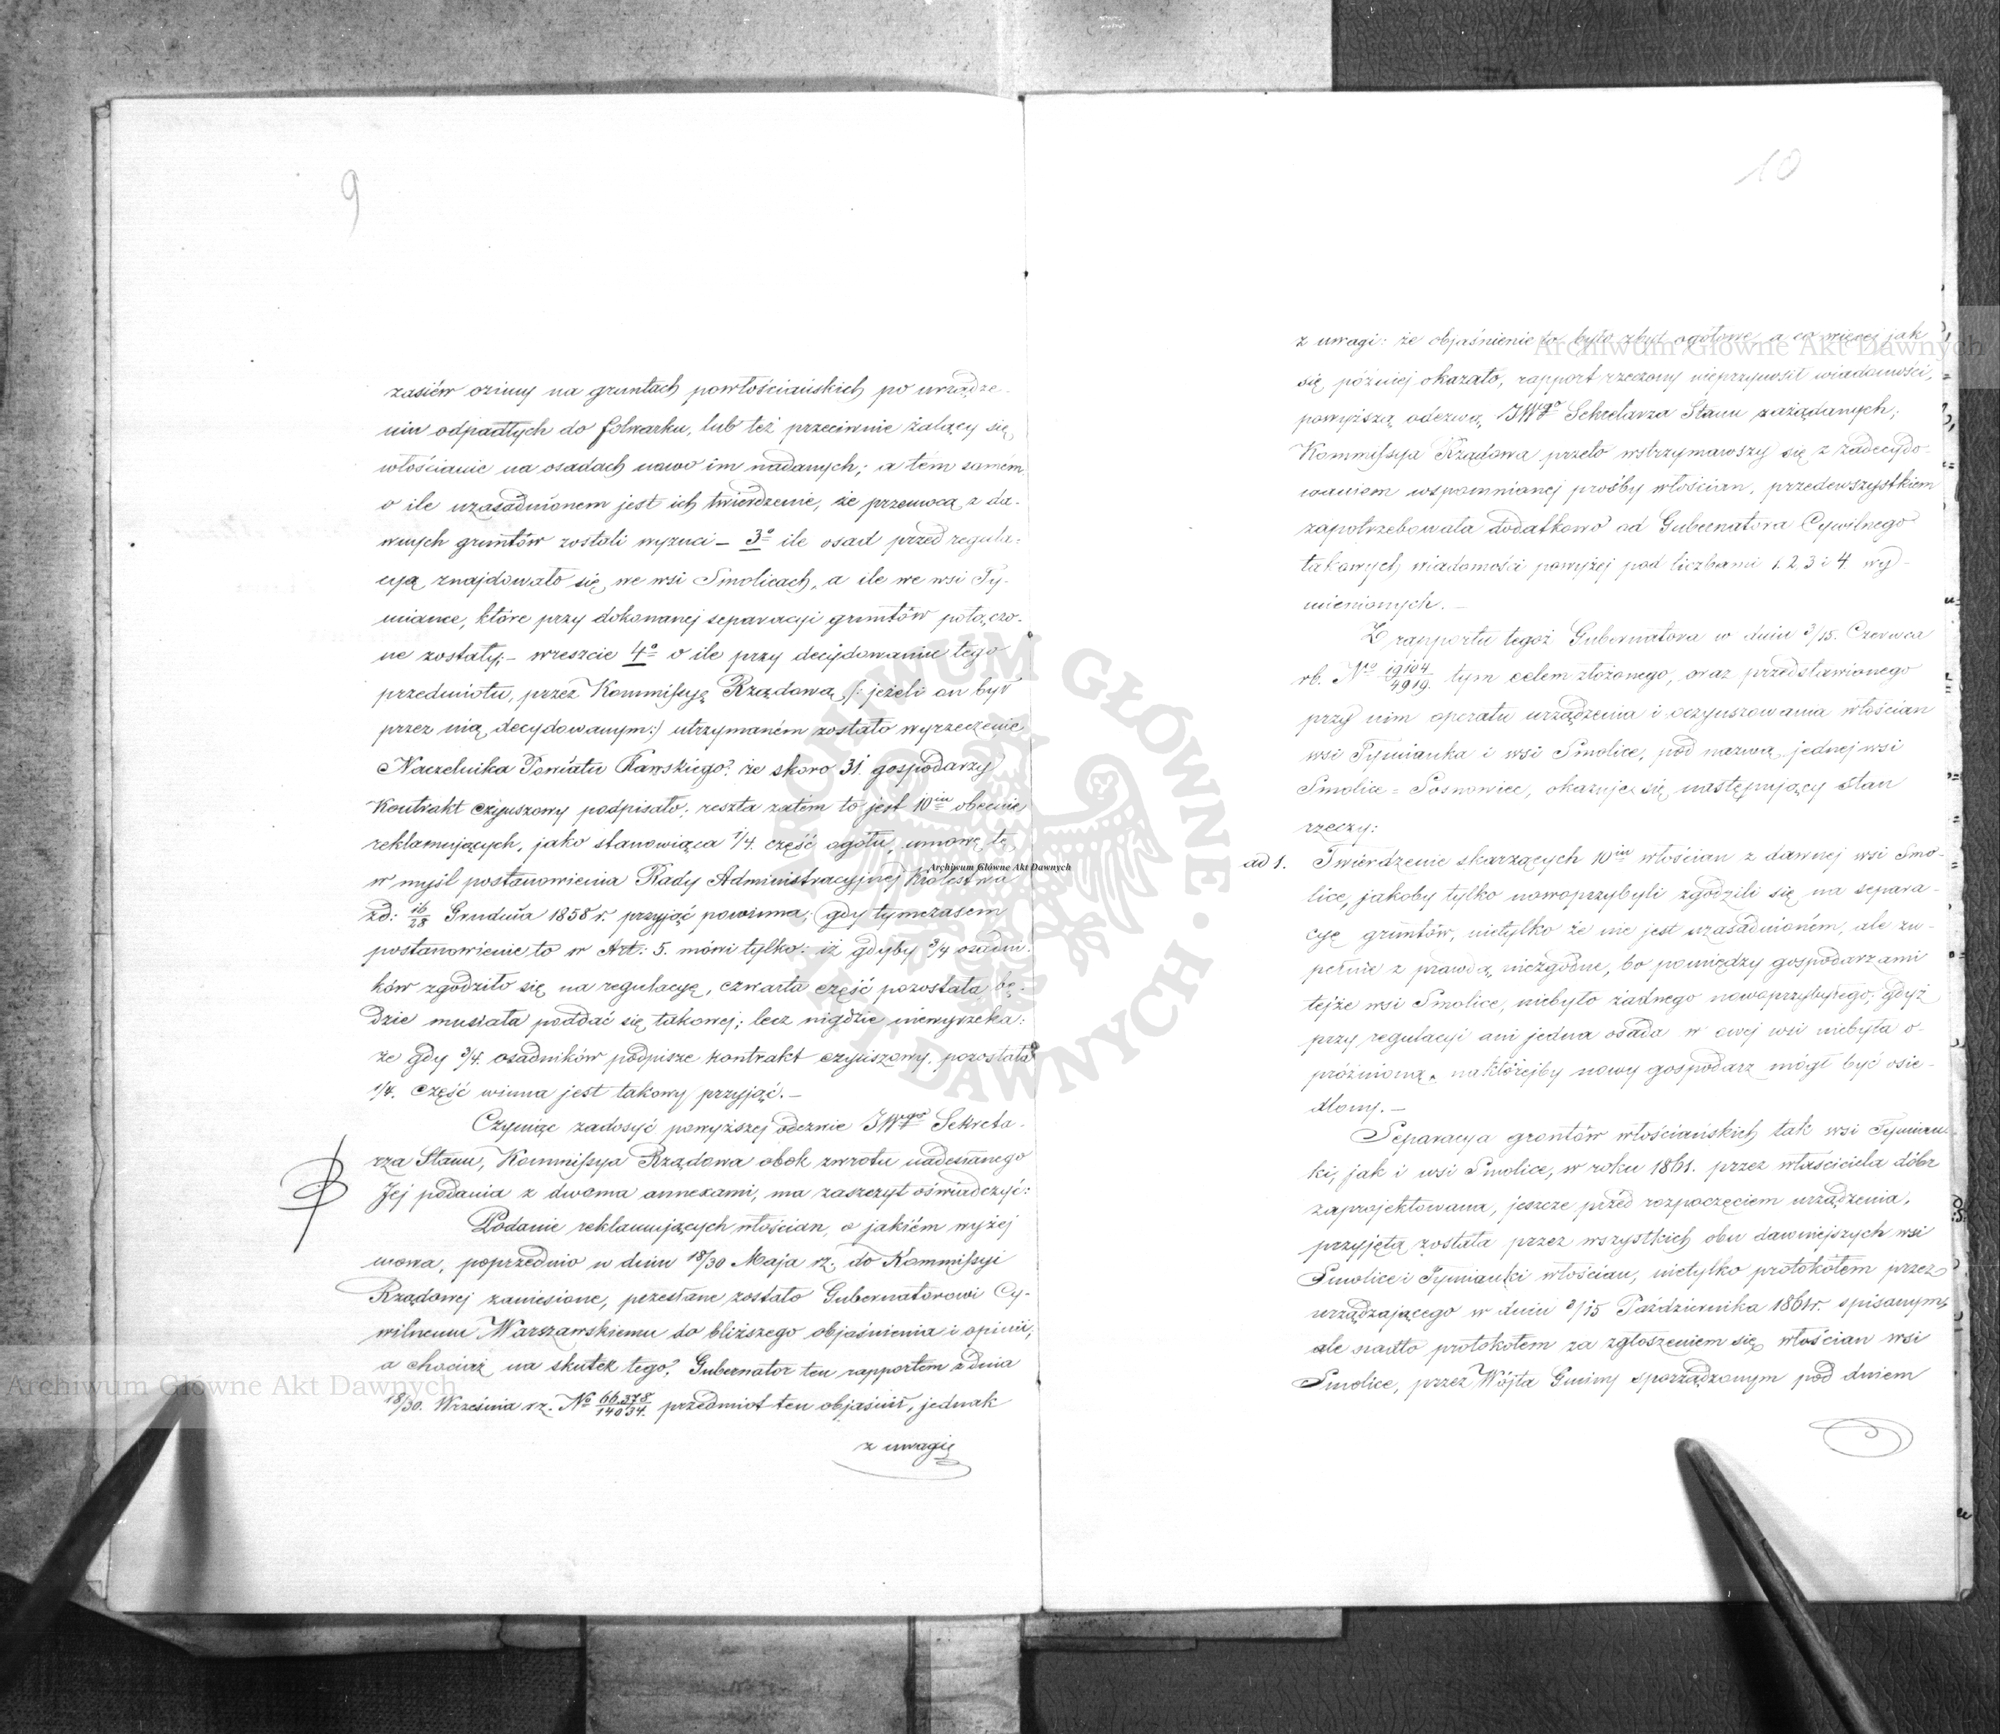 9
zasiéw ozimy na gruntach powłościańskich po urządze-
niu odpadłych do folwarku, lub też przeciwnie żalący się,
włościanie na osadach nowo im nadanych; a tém samém
o ile uzasadnioném jest ich twierdzenie, że przemocą z da-
wnych gruntów zostali wyzuci – 3o ile osad przed regula-
cyą znajdowało się we wsi Smolicach, a ile we wsi Ty-
miance, które przy dokonanej separacyi gruntów połączo-
ne zostały; – wreszcie 4o o ile przy decydowaniu tego
przedmiotu, przez Kommissyę Rządową /: jeżeli on był
przez nią decydowanym:/ utrzymaném zostało wyrzeczenie
Naczelnika Powiatu Rawskiego: że skoro 31. gospodarzy
Kontrakt czynszowy podpisało; reszta zatém to jest 10iu obecnie
reklamujących, jako stanowiąca 1/4. część ogółu, umowę tę,
w myśl postanowienia Rady Administracyjnej Królestwa
zd: 16/28 Grudnia 1858 r. przyjąć powinna; gdy tymczasem
postanowienie to w Art: 5. mówi tylko: iż gdyby 3/4 osadni-
ków zgodziło się na regulacyę, czwarta część pozostała bę-
dzie musiała poddać się takowej; lecz nigdzie niewyrzeka:
że gdy 3/4. osadników podpisze kontrakt czynszowy, pozostała
1/4. część winna jest takowy przyjąć. –
Czyniąc zadosyć powyższej odezwie JWgo Sekreta-
rza Stanu, Kommissya Rządowa obok zwrotu nadesłanego
Jej podania z dwoma annexami, ma zaszczyt oświadczyć:
Podanie reklamujących włościan, o jakiém wyżej
mowa, poprzednio w dniu 18/30 Maja rz., do Kommissyi
Rządowej zaniesione, przesłane zostało Gubernatorowi Cy-
wilnemu Warszawskiemu do bliższego objaśnienia i opinii,
a chociaż na skutek tego, Gubernator ten rapportem z dnia
18/30. Września rz. No 66.378/14034. przedmiot ten objaśnił, jednak
z uwagi
10
z uwagi: że objaśnienie to było zbyt ogólowe, a co więcej jak
się później okazało, rapport rzeczony nieprzynosił wiadomości,
powyższą odezwą JWgo Sekretarza Stanu zażądanych;
Kommissya Rządowa przeto wstrzymawszy się z zadecydo-
waniem wspomnionej prośby włościan, przedewszystkiem
zapotrzebowała dodatkowo od Gubernatora Cywilnego
takowych wiadomości powyżej pod liczbami 1. 2, 3 i 4. wy-
mienionych. –
Z rapportu tegoż Gubernatora w dniu 3/15. Czerwca
rb. No 19104/4919. tym celem złożonego, oraz przedstawionego
przy nim operatu urządzenia i oczynszowania włościan
wsi Tymianka i wsi Smolice, pod nazwą jednej wsi
Smolice = Sosnowiec, okazuje się następujący stan
rzeczy:
ad 1. Twierdzenie skarżących 10iu włościan z dawnej wsi Smo-
lice, jakoby tylko nowoprzybyli zgodzili się na separa-
cyę gruntów, nietylko że nie jest uzasadnioném, ale zu-
pełnie z prawdą niezgodne, bo pomiędzy gospodarzami
tejże wsi Smolice, niebyło żadnego nowoprzybyłego; gdyż
przy regulacyi ani jedna osada w owej wsi niebyła o-
próżnioną, na któréjby nowy gospodarz mógł być osie-
dlony. –
Separacya grontów włościańskich tak wsi Tymian-
ki, jak i wsi Smolice, w roku 1861. przez właściciela dóbr
zaprojektowana, jeszcze przed rozpoczęciem urządzenia,
przyjętą została przez wszystkich obu dawniejszych wsi
Smolice i Tymianki włościan, nietylko protokółem przez
urządzającego w dniu 3/15 Października 1861 r. spisanym,
ale nadto protokółem za zgłoszeniem się włościan wsi
Smolice, przez Wójta Gminy sporządzonym pod dniem
Archiwum Główne Akt Dawnych
Archiwum Główne Akt Dawnych
Archiwum Główne Akt Dawnych
ARCHIWUM GŁÓWNE AKT DAWNYCH